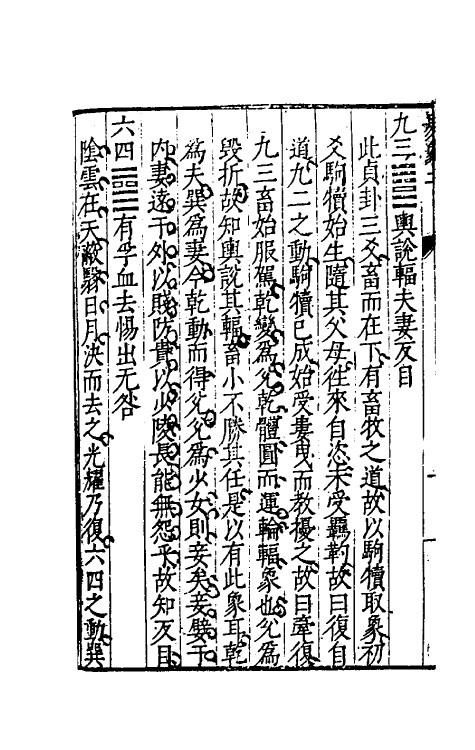 九三䷈輿說輻夫妻反目
此貞卦三爻畜而在下有畜牧之道故以駒犢取象初
爻駒犢始生隨其父母往來自恣未受羈靮故曰復自
道九二之動駒犢已成始受婁曳而教擾之故曰牽復
九三畜始服駕乾變爲兊乾體圓而運輪輻象也兊爲
毀折故知輿說其輻畜小不勝其任是以有此象耳乾
爲夫巽爲妻今乾動而得兊兊爲少女則妾矣妾嬖于
内妻遠于外以賤防貴以少陵長能無怨乎故知反目
六四䷈有孚血去惕出无咎
陰雲在天蔽翳日月決而去之光耀乃復六四之動巽